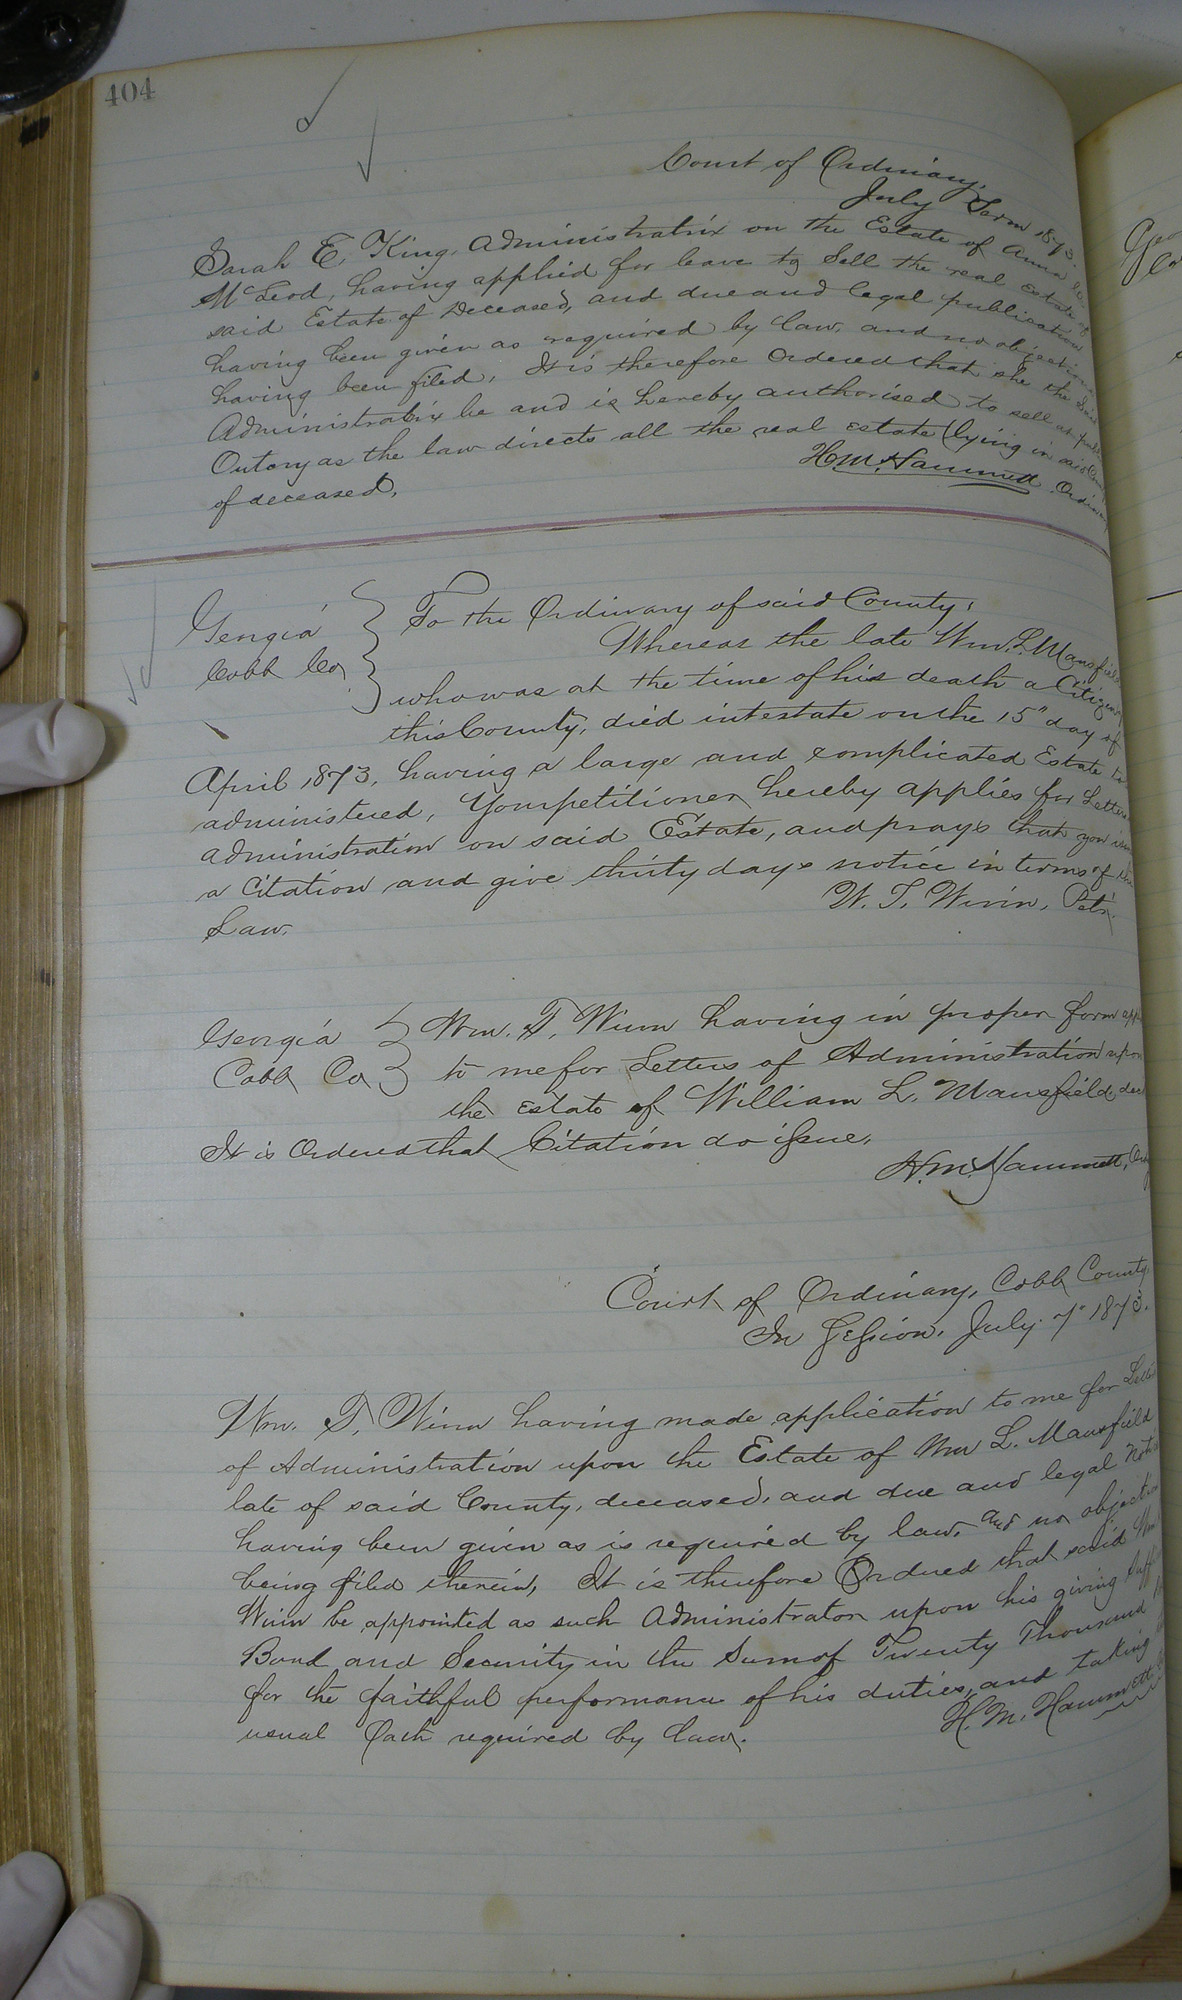 404
Court of Ordinary,
July Term 1873.
Sarah E. King, Administratrix on the Estate of Anna
McLeod, having applied for leave to Sell the real Estate of
said Estate of Deceased, and due and legal publication
having been given as required by law, and no objections
having been filed, It is therefore Ordered that she the said
Administratrix be and is hereby authorised to sell at
Outcry as the law directs all the real estate (lying in said
of deceased,
H. M. Hammett, Ordinary
Georgia
Cobb Co
To the Ordinary of said County,
Whereas the late Wm. L. Mansfield
who was at the time of his death a Citizen of
this County, died intestate on the 15" day of
April 1873, having a large and complicated Estate to
administered, Your petitioner hereby applies for Letters
administration on said Estate, and prays that you issue
a Citation and give thirty days notice in terms of the
Law.
W. T. Winn, Petr.
Georgia
Cobb Co
Wm. T. Winn having in proper form
to me for Letters of Administration upon
the Estate of William L. Mansfield,
It is Ordered that Citation do issue.
H. M. Hammett,
Court of Ordinary, Cobb County,
In Session, July 7" 1873.
Wm. T. Winn having made application to me for Letters
of Administration upon the Estate of Wm L. Mansfield
late of said County, deceased, and due and legal
having been given as is required by law, and no
being filed therein, It is therefore Ordered that said Wm
Winn be appointed as such Administrator upon his giving
Bond and Security in the Sum of Twenty Thousand
for the faithful performance of his duties, and taking
usual Oath required by law.
H. M. Hammett